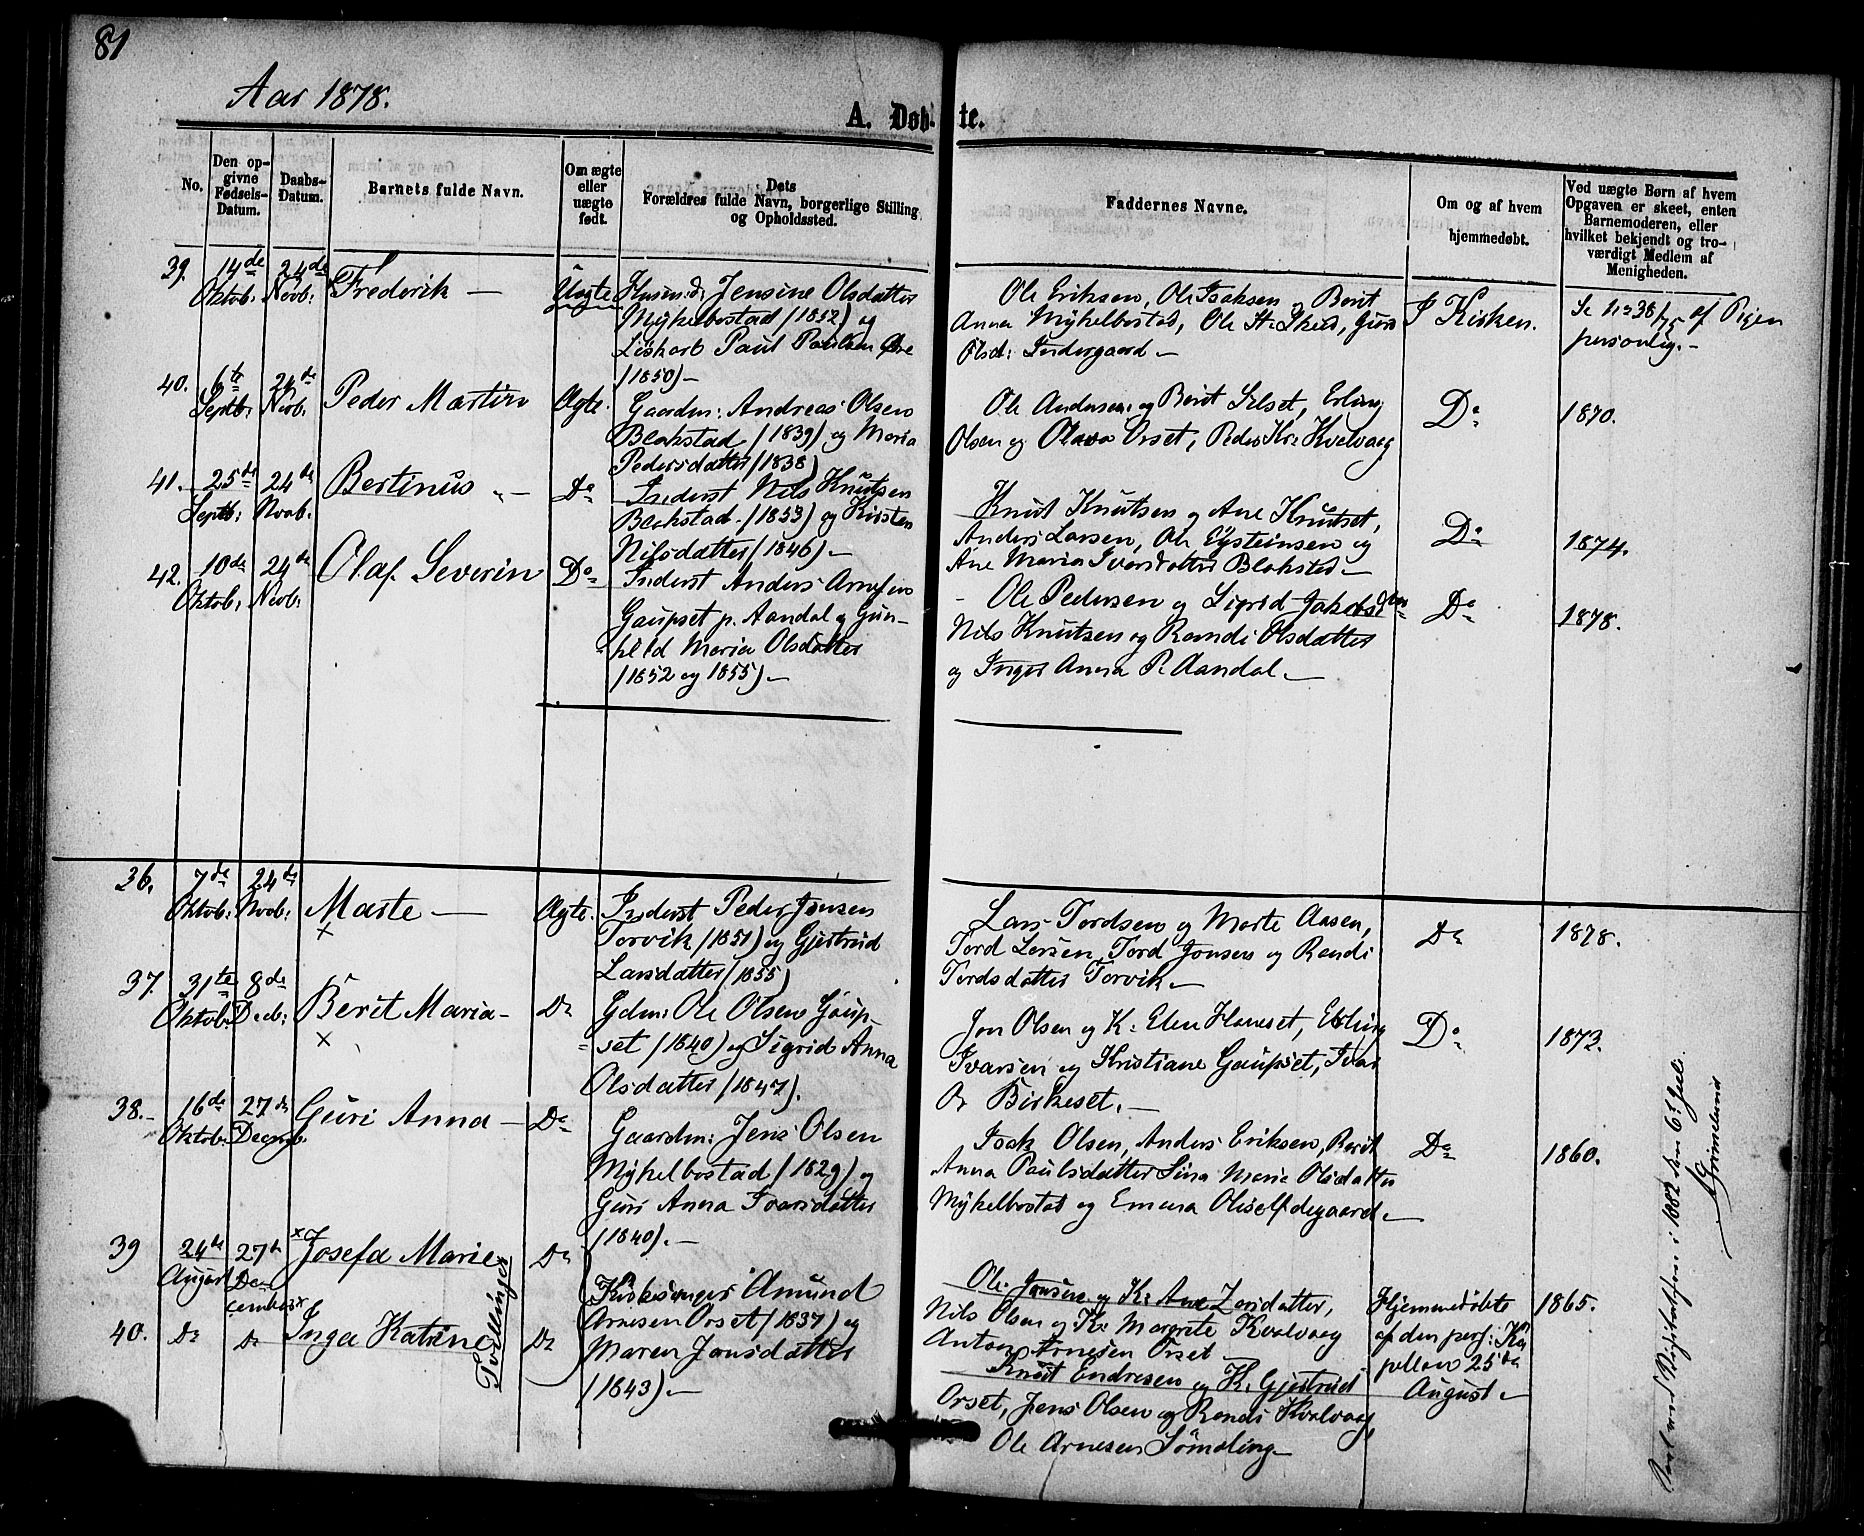 81
Aar 1878.
A. Døb- te.
No.
Den op-
givne
Fødsels-
Datum.
Daabs-
Datum.
Barnets fulde Navn.
Om ægte
eller
uægte
født.
Dets
Forældres fulde Navn, borgerlige Stilling
og Opholdssted.
Faddernes Navne.
Om og af hvem
hjemmedøbt.
Ved uægte Børn af hvem
Opgaven er skeet, enten
Barnemoderen, eller
hvilket bekjendt og tro-
værdigt Medlem af
Menigheden.
39. 14de Oktob: 24de Novb: Frederik — Uægte
Jensine Olsdatter
Myklebostad (1852) og
Paul Paulsen Øre
(1850) —
Ole Eriksen, Ole Isaksen og Berit
Anna Myhelbostad, Ole
Olsd: Indergaard —
I Kirken.
af Pigen
personlig. —
40. 6te Septb: 24de Novb: Peder Martin Ægte.
Gaardm: Andreas Olsen
Blakstad (1839) og Maria
Pedersdatter (1838)
Ole Andersen og Berit Silset, Erling
Olsen og Olava Orset, Peder Kr: Kvalvaag
Do
1870.
41. 25de Septb: 24de Novb: Bertinus — Do
Inderst Nils Knutsen
Blakstad. (1853) og Kirsten
Nilsdatter (1846) —
Knut Knutsen og Ane Knutset,
Anders Larsen, Ole Eysteinsen og
Ane Maria Ivarsdatter Blakstad —
Do
1874.
42. 10de Oktob: 24de Novb: Olaf Severin Do
Inderst Anders Arnesen
Gaupset p. Aandal og Gun-
hild Maria Olsdatter
(1852 og 1855) —
Ole Pedersen og Sigrid Jakobsdtr
Nils Knutsen og Randi Olsdatter
og Inger Anna P. Aandal —
Do
1878.
36. 7de Oktob: 24de Novb: Marte — Ægte.
x
Inderst Peder Jonsen
Torvik (1851) og Gjertrud
Larsdatter (1855)
Lars Tordsen og Marte Aasen,
Tord Larsen, Tord Jonsen og Randi
Tordsdatter Torvik —
Do
1878.
37. 31te Oktob: 8de Decb: Berit Maria — Do
x
Gdm: Ole Olsen Gaup-
set (1840) og Sigrid Anna
Olsdatter (1847).
Jon Olsen og K: Elen Haneset, Erling
Ivarsen og Kristiane Gaupset, Ivar
O. Birkeset. —
Do
1873.
38. — 16de Oktob: 27de Decemb. Guri Anna — Do
Gaardm: Jens Olsen
Myhelbostad (1829) og
Guri Anna Ivarsdatter
(1840). —
Isak Olsen, Anders Eriksen, Berit
Anna Paulsdatter Sina Marie Olsdatter
Myhelbostad og Emma
Do
1860.
39 24de August 27de December x Josefa Marie Do
Tvillinger
Kirkesanger Amund
Arnesen Orset (1837) og
Maren Jonsdatter
(1843). —
Ole Jonsen og K: Ane Larsdatter,
Nils Olsen og K: Margrete Kvalvaag
Anton Arnesen Orset —
Hjemmedøbte
af den pers: Ka
pellan 25de
August —
1865.
40. Do Do x Inga Katrine Do
Knut Endresen og K: Gjertrud
Orset, Jens Olsen og Randi Kvalvaag,
Ole Arnesen Sømoling —
i 1882 den 6te Juli.
Grimelund